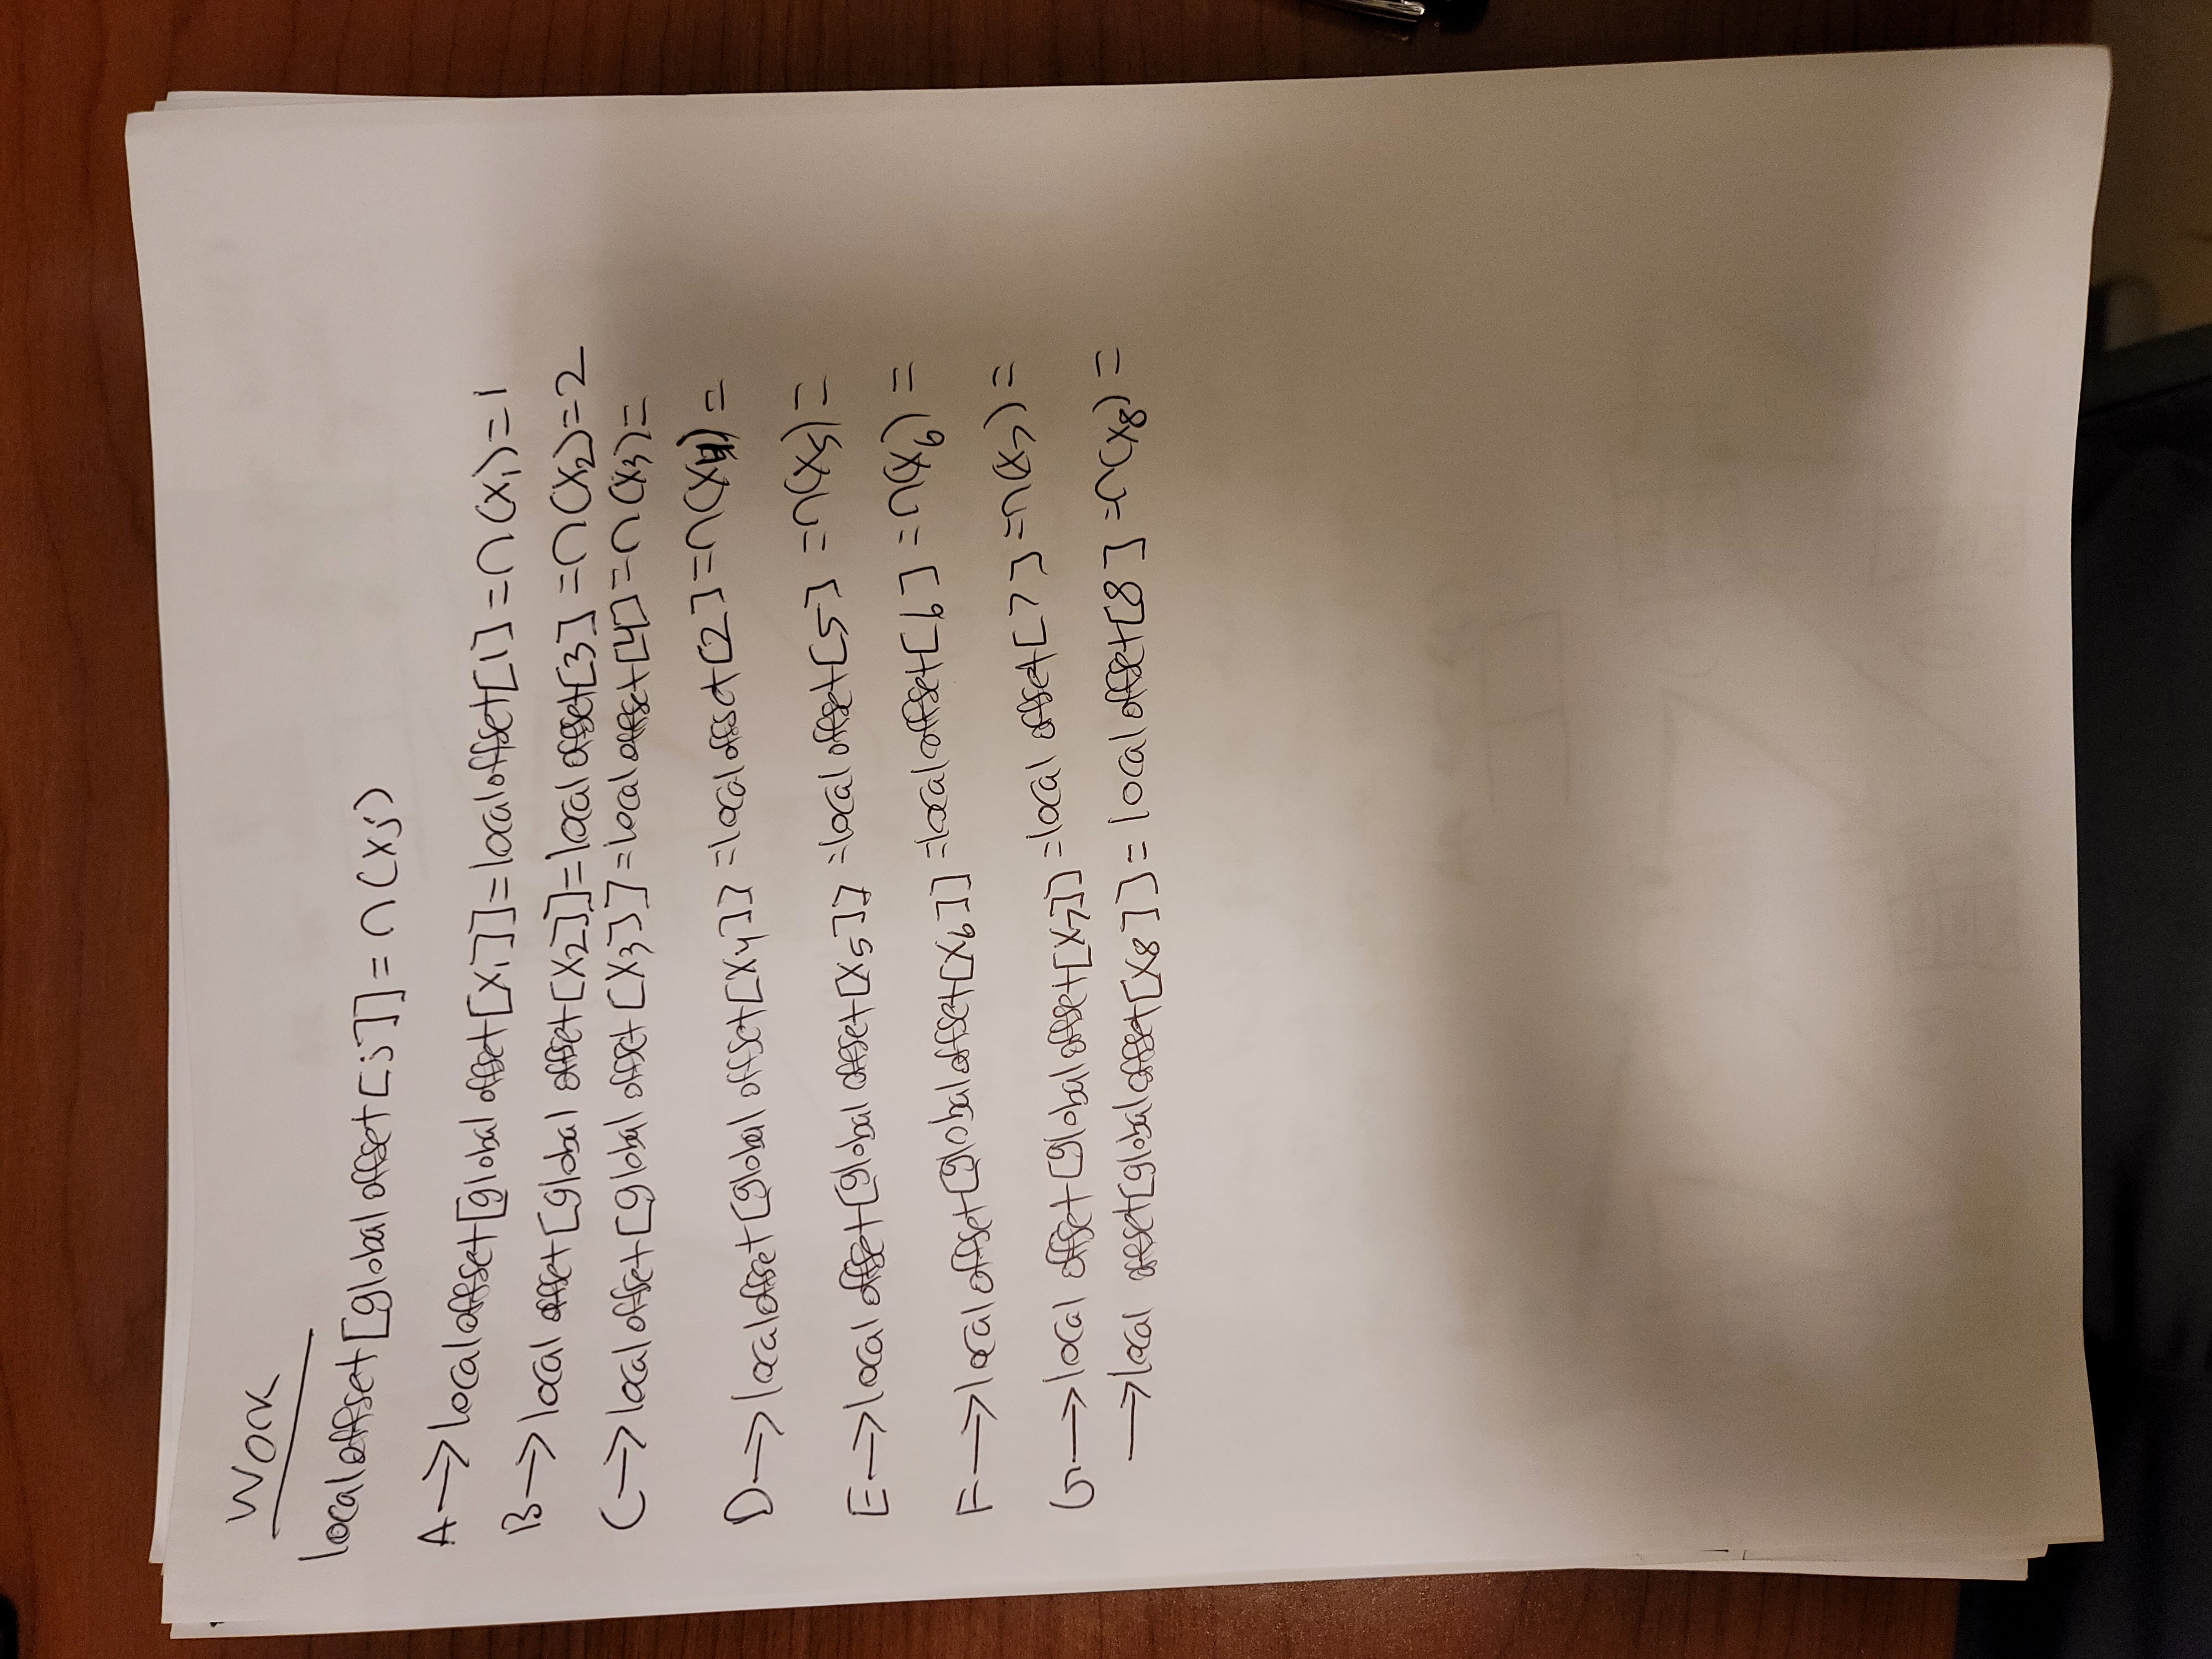 Work
localoffset[global offset[j]] = n(xj)
A → localoffset[global offset[X1]] = localoffset[1] = n(X1) = 1
B → local offset[global offset[X2]] = local offset[3] = n(X2) = 2
C → local offset[global offset[X3]] = local offset[4] = n(X3) =
D → localoffset[global offset[X4]] = local offset[2] = n(X4) =
E → local offset[global offset[X5]] = local offset[5] = n(X5) =
F → local offset[global offset[X6]] = local offset[6] = n(X6) =
G → local offset[global offset[X7]] = local offset[7] = n(X7) =
→ local offset[global offset[X8]] = local offset[8] = n(X8) =